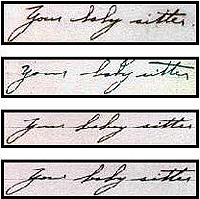 Your baby sitter.
Your baby sitter
Your baby sitter
Your baby sitter